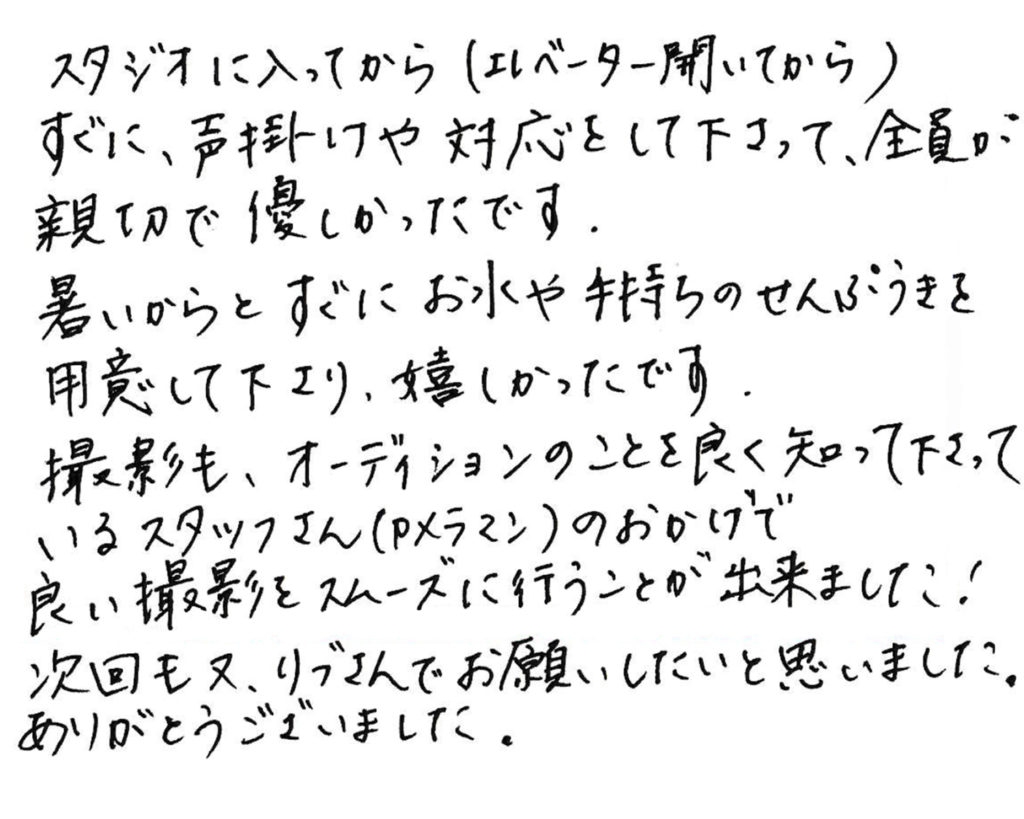 スタジオに入ってから(エレベーター開いてから)
すぐに、声掛けや対応をして下さって、全員が
親切で優しかったです.
暑いからとすぐにお水や手持ちのせんぷうきを
用意して下さり、嬉しかったです.
撮影も、オーディションのことを良く知って下さって
いるスタッフさん(カメラマン)のおかげで
良い撮影をスムーズに行うことが出来ました!
次回も又、りブさんでお願いしたいと思いました。
ありがとうございました。